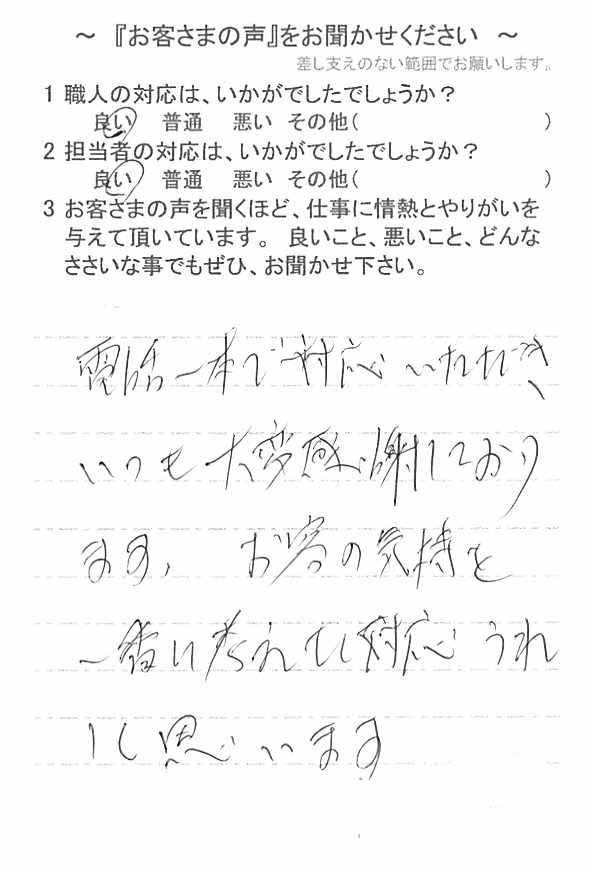 ～ 『お客さまの声』をお聞かせください ～
差し支えのない範囲でお願いします。
1 職人の対応は、いかがでしたでしょうか？
良い 普通 悪い その他( )
2 担当者の対応は、いかがでしたでしょうか？
良い 普通 悪い その他( )
3 お客さまの声を聞くほど、仕事に情熱とやりがいを
与えて頂いています。 良いこと、悪いこと、どんな
ささいな事でもぜひ、お聞かせ下さい。
電話一本で対応いただき、
いつも大変感謝しており
ます。 お客の気持を
一番に考えた対応うれ
しく思います